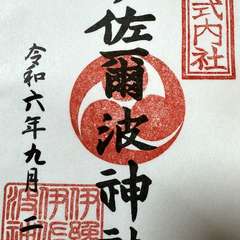 式内社
佐爾波神社
令和六年九月
伊豫
伊佐
波神